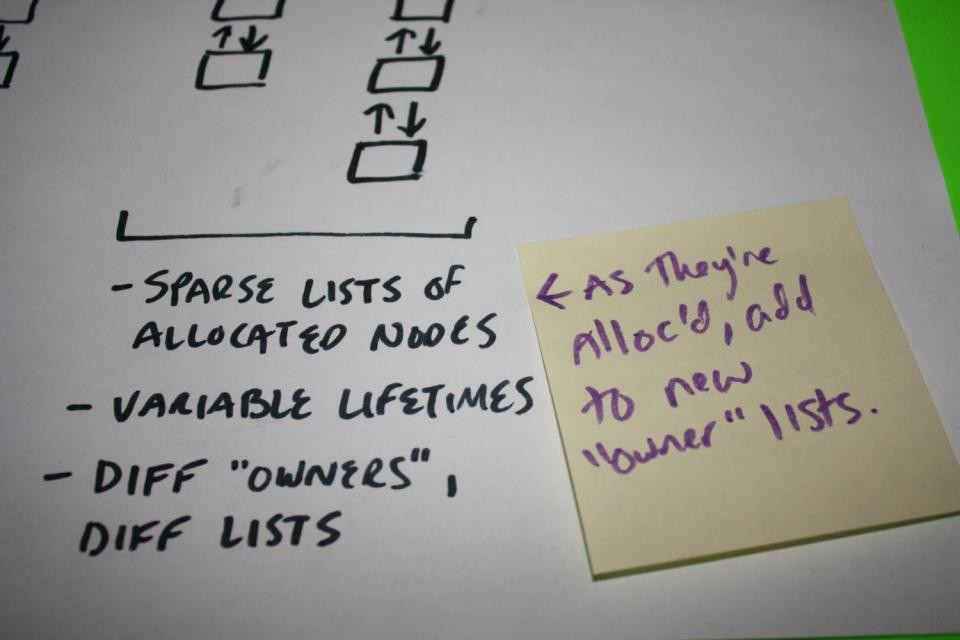 - SPARSE LISTS OF
ALLOCATED NODES
- VARIABLE LIFETIMES
- DIFF "OWNERS",
DIFF LISTS
← As They're
Alloc'd, add
to new
"owner" lists.